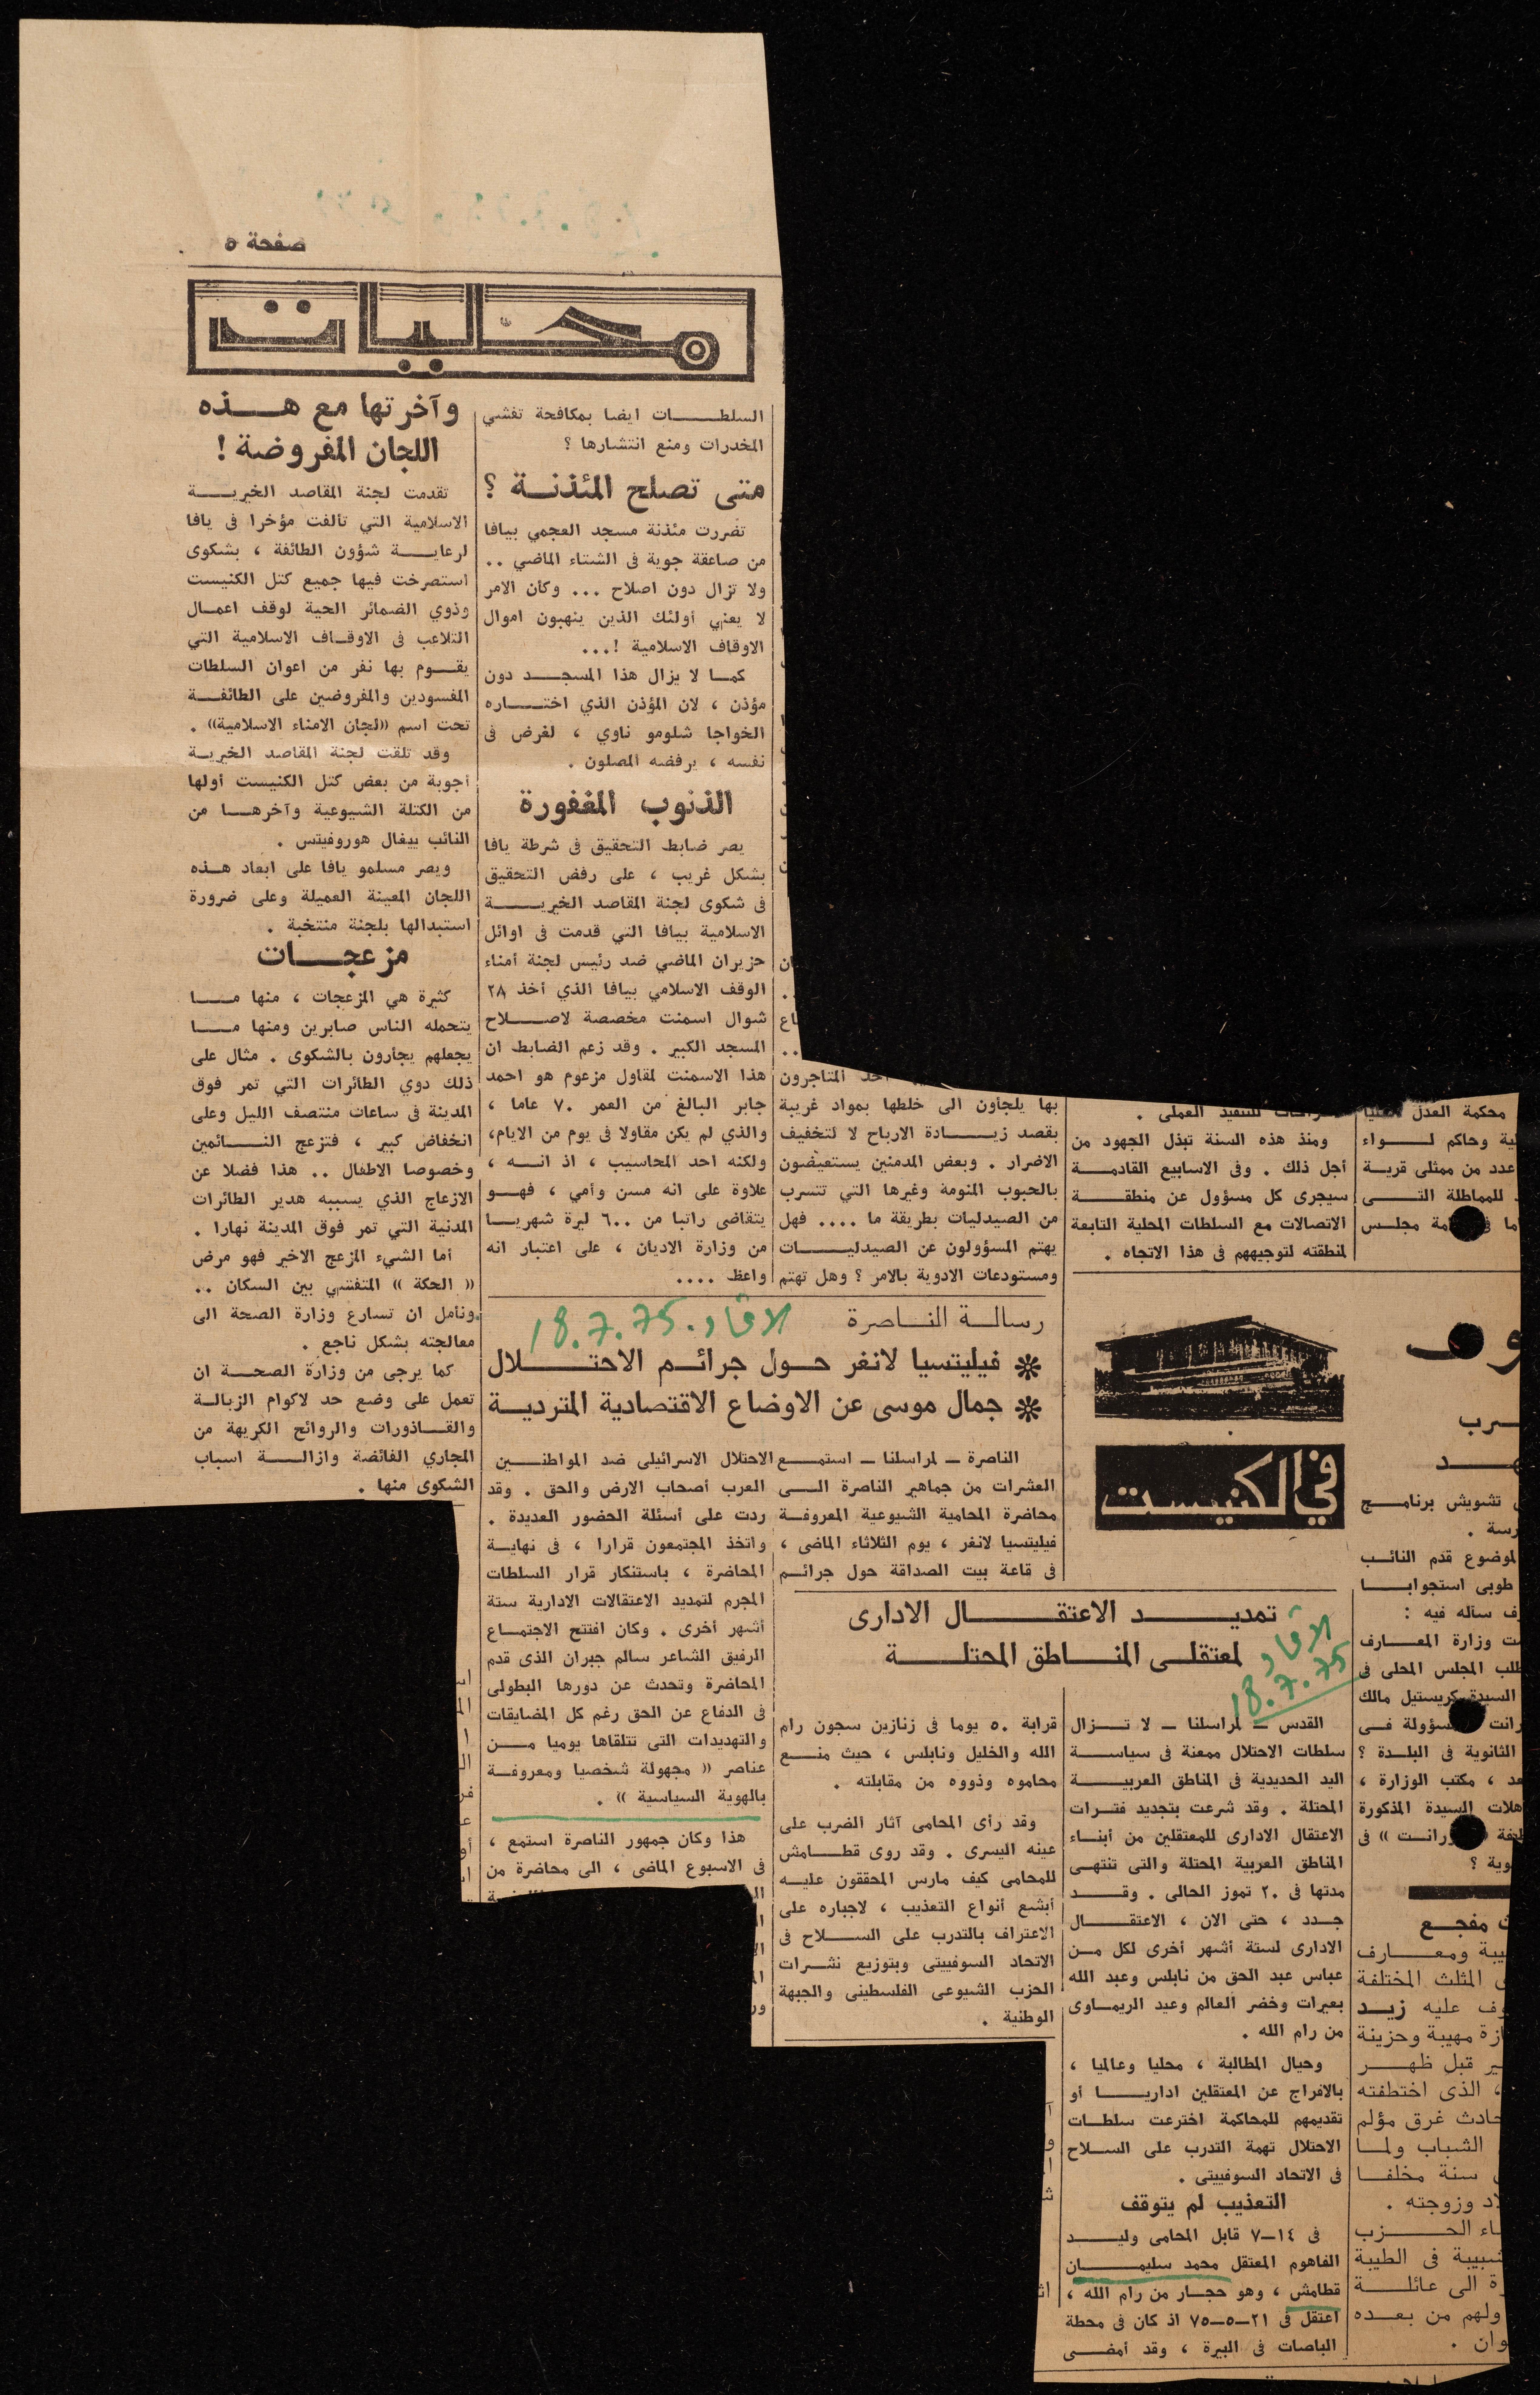 صفحة ٥
محليات
وآخرتها مع هـــذه
اللجان المفروضة !
تقدمت لجنة المقاصد الخيريـــة
الاسلامية التي تألفت مؤخرا فى يافا
لرعايـــة شؤون الطائفة ، بشكوى
استصرخت فيها جميع كتل الكنيست
وذوي الضمائر الحية لوقف اعمــال
التلاعب فى الاوقــاف الاسلامية التي
يقـــوم بها نفر من اعوان السلطات
المفسودين والمفروضين على الطائفـــة
تحت اسم «لجان الامناء الاسلامية» .
وقد تلقت لجنة المقاصد الخيريــة
أجوبة من بعض كتل الكنيست أولها
من الكتلة الشيوعية وآخرهـــا من
النائب ييغال هوروفيتس .
ويصر مسلمو يافا على ابعاد هــذه
اللجان المعينة العميلة وعلى ضرورة
استبدالها بلجنة منتخبة .
مزعجـــات
كثيرة هي المزعجات ، منها مـــا
يتحمله الناس صابرين ومنها مـــا
يجعلهم يجأرون بالشكوى . مثال على
ذلك دوي الطائرات التي تمر فوق
المدينة فى ساعات منتصف الليل وعلى
انخفاض كبير ، فتزعج النـــائمين
وخصوصا الاطفال .. هذا فضلا عن
الازعاج الذي يسببه هدير الطائرات
المدنية التي تمر فوق المدينة نهارا .
أما الشيء المزعج الاخير فهو مرض
« الحكة » المتفشي بين السكان ..
ونأمل ان تسارع وزارة الصحة الى
معالجته بشكل ناجع .
كما يرجى من وزارة الصحـــة ان
تعمل على وضع حد لاكوام الزبالـــة
والقـــاذورات والروائح الكريهة من
المجاري الفائضة وازالـــة اسباب
الشكوى منها .
السلطـــات ايضا بمكافحة تفشي
المخدرات ومنع انتشارها ؟
متى تصلح المئذنــة ؟
تضررت مئذنة مسجد العجمي بيافا
من صاعقة جوية فى الشتاء الماضي ..
ولا تزال دون اصلاح ... وكأن الامر
لا يعني أولئك الذين ينهبون اموال
الاوقاف الاسلامية !...
كمــا لا يزال هذا المسجـــد دون
مؤذن ، لان المؤذن الذي اختـــاره
الخواجا شلومو ناوي ، لغرض فى
نفسه ، يرفضه المصلون .
الذنوب المغفورة
يصر ضابط التحقيق فى شرطة يافا
بشكل غريب ، على رفض التحقيق
فى شكوى لجنة المقاصد الخيريـــة
الاسلامية بيافا التي قدمت فى اوائل
حزيران الماضي ضد رئيس لجنة أمناء
الوقف الاسلامي بيافا الذي أخذ ٢٨
شوال اسمنت مخصصة لاصـــلاح
المسجد الكبير . وقد زعم الضابط ان
هذا الاسمنت لمقاول مزعوم هو احمد
جابر البالغ من العمر ٧٠ عاما ،
والذي لم يكن مقاولا فى يوم من الايام،
ولكنه احد المحاسيب ، اذ انـــه ،
علاوة على انه مسن وأمي ، فهـــو
يتقاضى راتبا من ٦٠٠ ليرة شهريـــا
من وزارة الاديان ، على اعتبار انه
واعظ ....
احد المتاجرون
بها يلجأون الى خلطها بمواد غريبة
بقصد زيـــادة الارباح لا لتخفيف
الاضرار . وبعض المدمنين يستعيضون
بالحبوب المنومة وغيرها التي تتسرب
من الصيدليات بطريقة ما .... فهل
يهتم المسؤولون عن الصيدليـــات
ومستودعات الادوية بالامر ؟ وهل تهتم
للتنفيذ العملى .
ومنذ هذه السنة تبذل الجهود من
أجل ذلك . وفى الاسابيع القادمـــة
سيجرى كل مسؤول عن منطقـــة
الاتصالات مع السلطات المحلية التابعة
لمنطقته لتوجيههم فى هذا الاتجاه .
محكمة العدل
وحاكم لـــواء
عدد من ممثلى قريـــة
للمماطلة التـــى
مجلـــس
رسالــة النــاصرة
الاتحاد. 18.7.75
❊ فيليتسيا لانغر حــول جرائــم الاحتـــلال
❊ جمال موسى عن الاوضاع الاقتصادية المترديــة
الناصرة ــ لمراسلنا ــ استمـــع
العشرات من جماهير الناصرة الـــى
محاضرة المحامية الشيوعية المعروفـــة
فيليتسيا لانغر ، يوم الثلاثاء الماضى ،
فى قاعة بيت الصداقة حول جرائـــم
الاحتلال الاسرائيلى ضد المواطنـــين
العرب أصحاب الارض والحق . وقد
ردت على أسئلة الحضور العديدة .
واتخذ المجتمعون قرارا ، فى نهايـــة
المحاضرة ، باستنكار قرار السلطات
المجرم لتمديد الاعتقالات الادارية ستة
أشهر أخرى . وكان افتتح الاجتمـــاع
الرفيق الشاعر سالم جبران الذى قدم
المحاضرة وتحدث عن دورها البطولى
فى الدفاع عن الحق رغم كل المضايقات
والتهديدات التى تتلقاها يوميا مـــن
عناصر « مجهولة شخصيا ومعروفـــة
بالهوية السياسية » .
هذا وكان جمهور الناصرة استمع ،
فى الاسبوع الماضى ، الى محاضرة من
في الكنيست
تمديـــد الاعتقـــال الادارى
لمعتقلــى المنـــاطق المحتلـــة
الاتحاد
18.7.75
القدس ــ لمراسلنا ــ لا تـــزال
سلطات الاحتلال ممعنة فى سياســـة
اليد الحديدية فى المناطق العربيـــة
المحتلة . وقد شرعت بتجديد فتــرات
الاعتقال الادارى للمعتقلين من أبنـــاء
المناطق العربية المحتلة والتى تنتهــى
مدتها فى ٢٠ تموز الحالى . وقـــد
جــدد ، حتى الان ، الاعتقـــال
الادارى لستة أشهر أخرى لكل مــن
عباس عبد الحق من نابلس وعبد الله
بعيرات وخضر العالم وعيد الريمــاوى
من رام الله .
وحيال المطالبة ، محليا وعالميا ،
بالافراج عن المعتقلين اداريـــا أو
تقديمهم للمحاكمة اخترعت سلطــات
الاحتلال تهمة التدرب على الســـلاح
فى الاتحاد السوفييتى .
التعذيب لم يتوقف
فى ١٤–٧ قابل المحامى وليـــد
الفاهوم المعتقل محمد سليمـــان
قطامش ، وهو حجــار من رام الله ،
اعتقل فى ٢١–٥–٧٥ اذ كان فى محطة
الباصات فى البيرة ، وقد أمضـــى
قرابة ٥٠ يوما فى زنازين سجون رام
الله والخليل ونابلس ، حيث منـــع
محاموه وذووه من مقابلته .
وقد رأى المحامى آثار الضرب على
عينه اليسرى . وقد روى قطـــامش
للمحامى كيف مارس المحققون عليـــه
أبشع أنواع التعذيب ، لاجباره على
الاعتراف بالتدرب على الســـلاح فى
الاتحاد السوفييتى وبتوزيع نشــرات
الحزب الشيوعى الفلسطينى والجبهة
الوطنية .
تشويش برنامـــج
لموضوع قدم النائـــب
طوبى استجوابـــا
سأله فيه :
وزارة المعـــارف
طلب المجلس المحلى فى
السيدة كريستيل مالك
الثانوية فى البلـــدة ؟
، مكتب الوزارة ،
السيدة المذكورة
مفجـــع
ومعـــارف
المثلث المختلفة
عليه زيـــد
مهيبة وحزينة
قبل ظهـــر
، الذى اختطفته
حادث غرق مؤلم
الشباب ولمـــا
سنة مخلفـــا
وزوجته .
الحـــزب
فى الطيبة
الى عائلـــة
ولهم من بعـــده